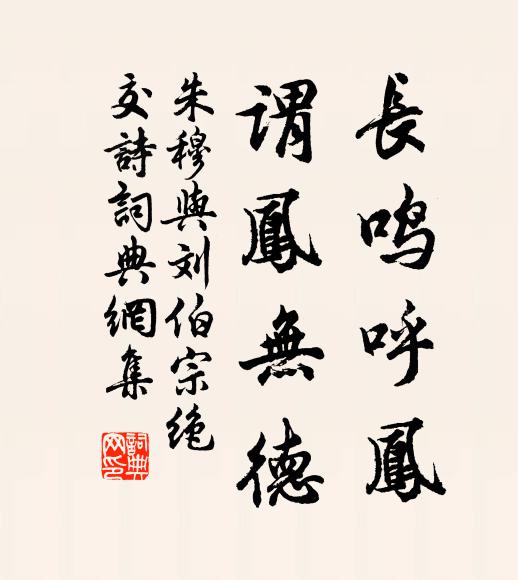 長鸣呼鳳
謂鳳無德
朱穆與刘伯宗绝
交詩詞典網集
詞典网印